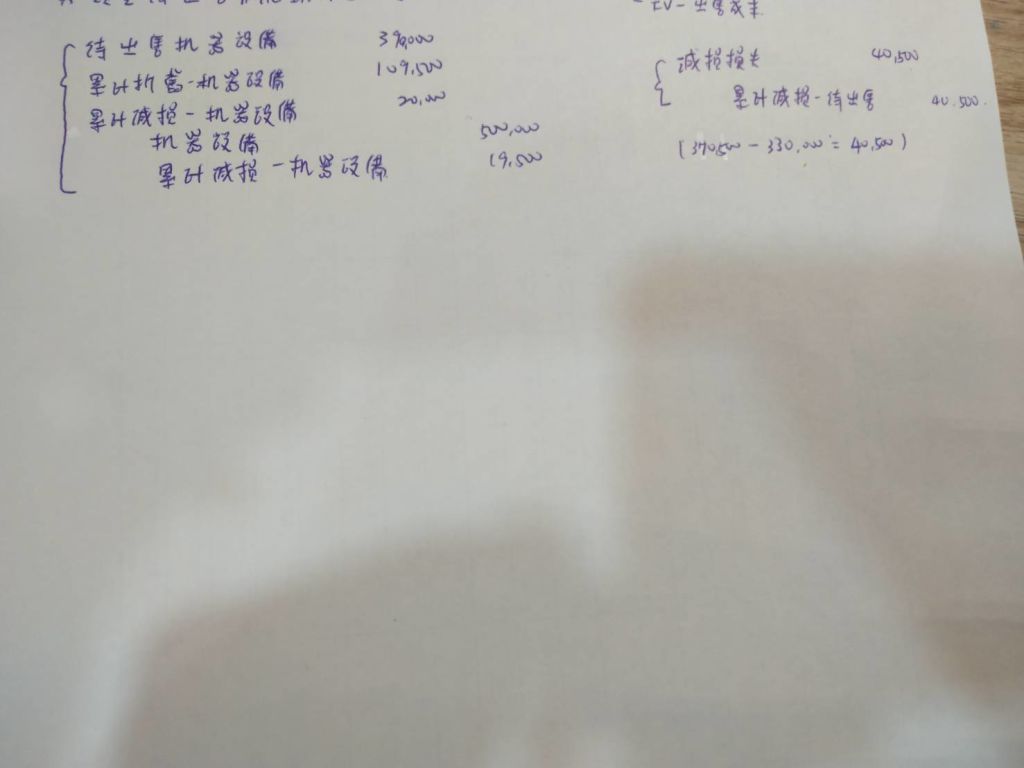 -FV-出售成本
待出售机器設備 390,000
累计折舊-机器設備 109,500
累计減損-机器設備 20,000
机器設備 500,000
累计減損-机器設備 19,500
減損損失 40,500
累计減損-待出售 40,500.
(370,500-330,000=40,500)